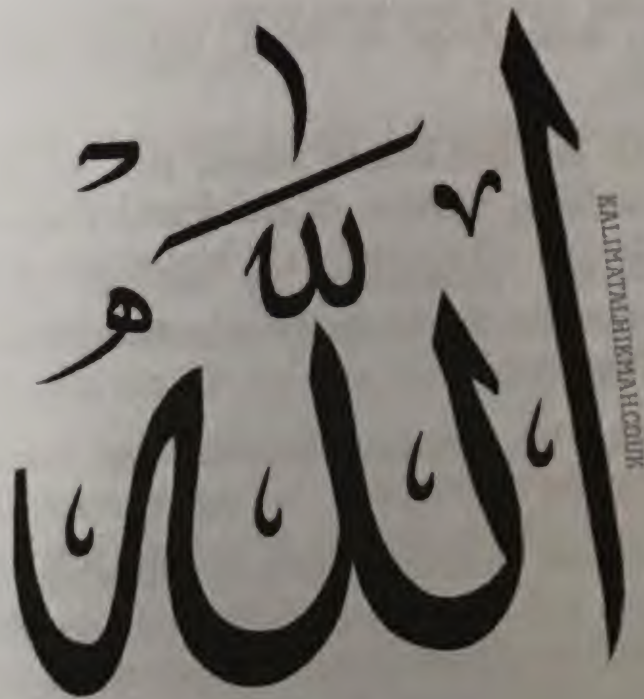 الله
KALIMATALHIKMAH.CO.UK